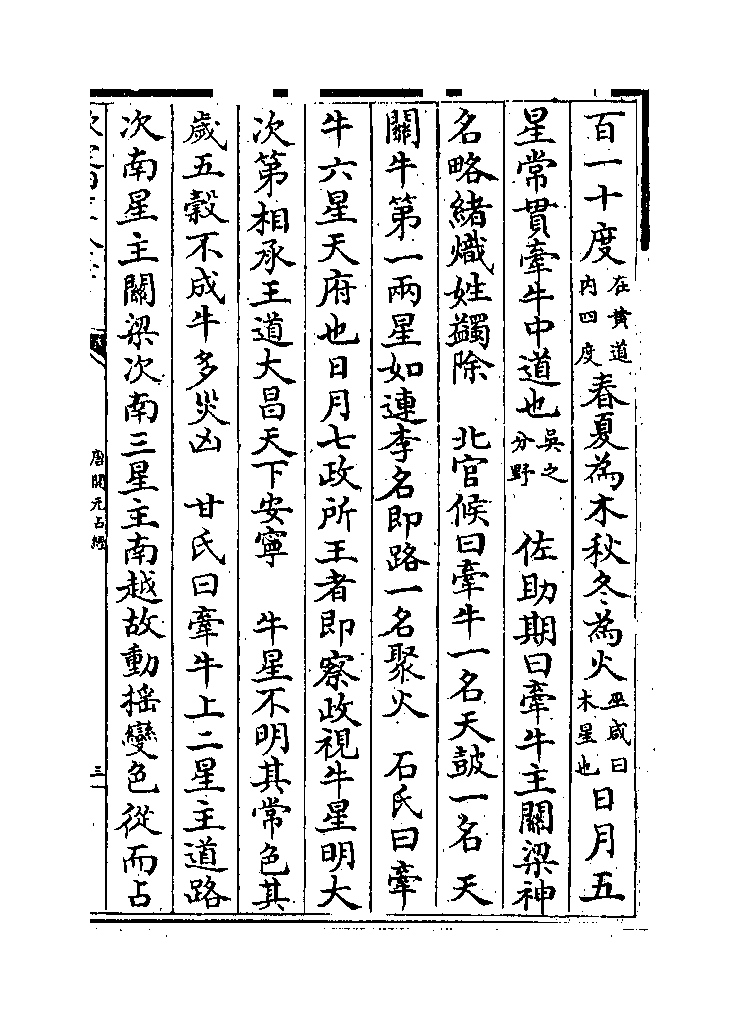 百一十度在黄道内四度春夏為木秋冬為火巫咸曰木星也日月五
星常貫牽牛中道也吳之分野　佐助期曰牽牛主關梁神
名略緒熾姓蠲除　北官候曰牽牛一名天鼓一名天
關牛第一兩星如連李名即路一名聚火　石氏曰牽
牛六星天府也日月七政所王者即察政視牛星明大
次第相承王道大昌天下安寧　牛星不明其常色其
歳五穀不成牛多災凶　甘氏曰牽牛上二星主道路
次南星主關梁次南三星主南越故動揺變色從而占
唐開元占經
三